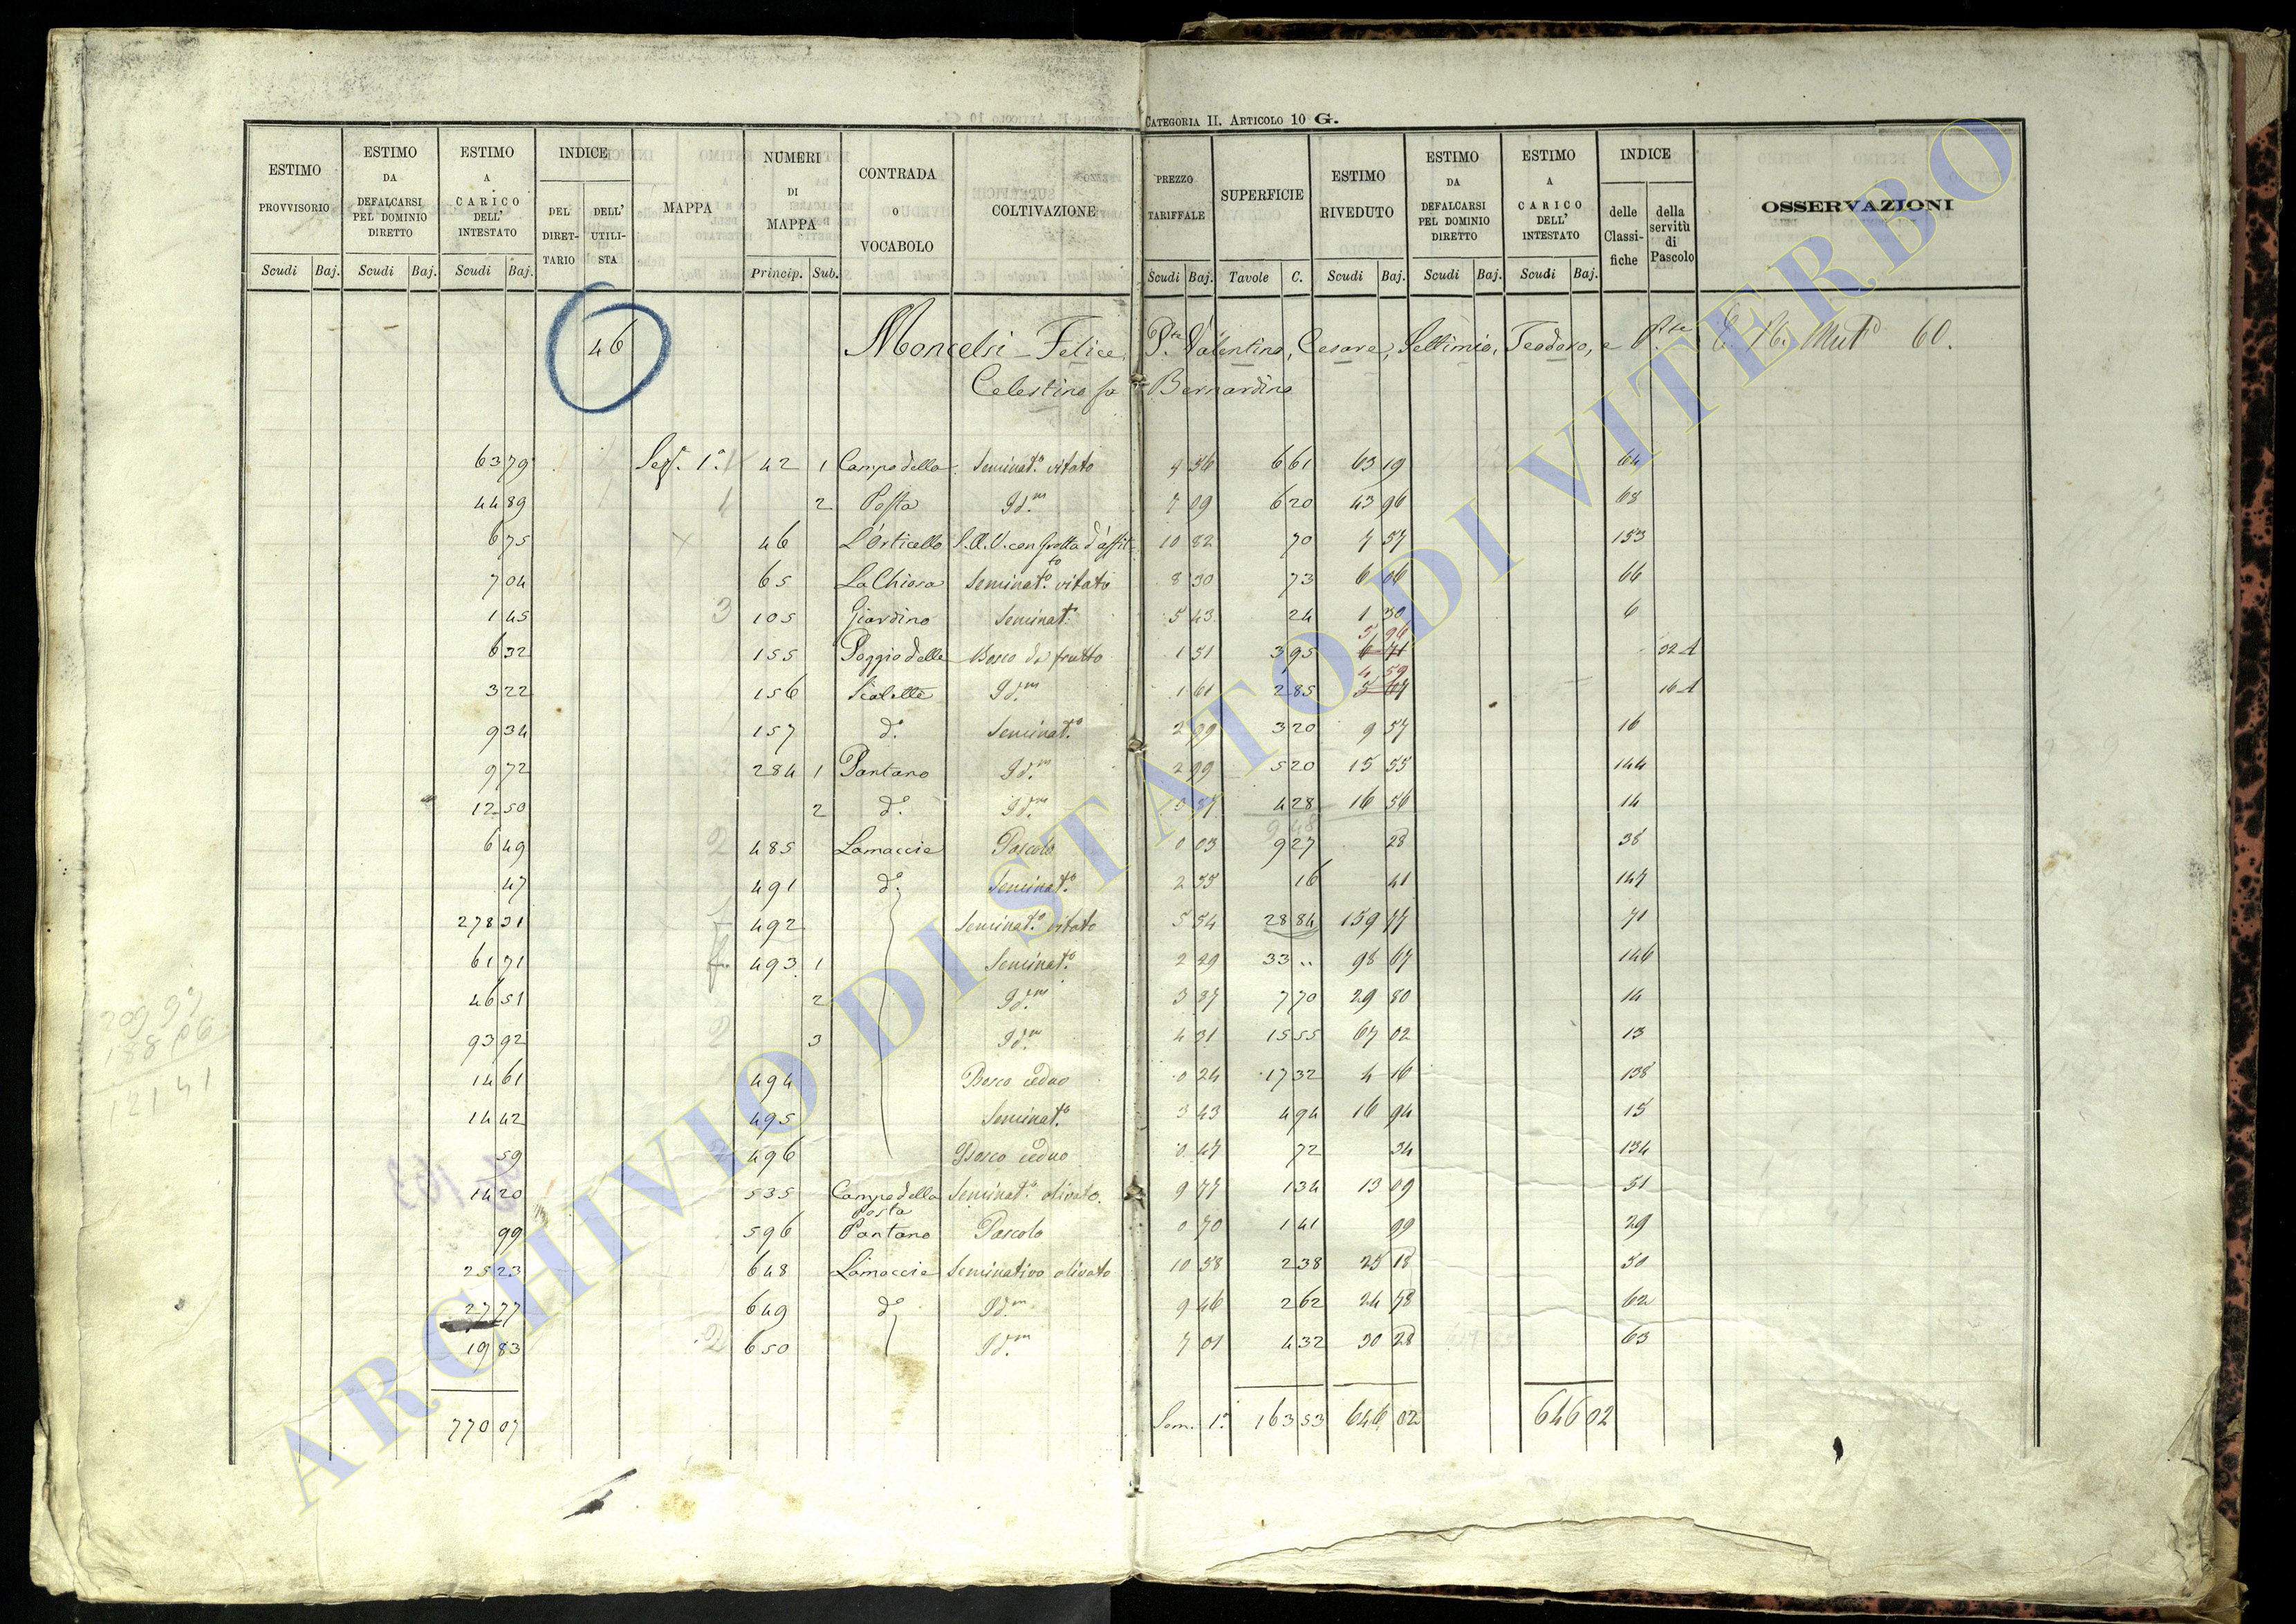 CATEGORIA II. ARTICOLO 10 G.
ESTIMO PROVVISORIO | ESTIMO DA DEFALCARSI PEL DOMINIO DIRETTO | ESTIMO A CARICO DELL' INTESTATO | INDICE | MAPPA | NUMERI DI MAPPA | CONTRADA O VOCABOLO | COLTIVAZIONE | PREZZO TARIFFALE | SUPERFICIE | ESTIMO RIVEDUTO | ESTIMO DA DEFALCARSI PEL DOMINIO DIRETTO | ESTIMO A CARICO DELL' INTESTATO | INDICE | OSSERVAZIONI
DEL DIRET-TARIO | DELL' UTILI-STA | delle Classi-fiche | della servitù di Pascolo
Scudi | Baj. | Scudi | Baj. | Scudi | Baj. | Princip. | Sub. | Scudi | Baj. | Tavole | C. | Scudi | Baj. | Scudi | Baj. | Scudi | Baj.
46 Moncelsi Felice Pte Valentino, Cesare, Settimio, Teodoro, e Pte 60.
Celestino fu Bernardino
63 79 | Sezf. 1a | 42 | 1 | Campo della | Seminato vitato | 9 56 | 6 61 | 63 19 | 64
44 89 | 2 | Posta | Idm | 7 09 | 6 20 | 43 96 | 68
6 75 | 46 | L'Orticello | S.O.V. con grotta d'affitto | 10 82 | 70 | 7 57 | 153
7 04 | 65 | La Chiesa | Seminato vitato | 8 30 | 73 | 6 06 | 66
1 45 | 3 | 105 | Giardino | Seminat. | 5 43 | 24 | 1 30 | 6
6 32 | 155 | Poggio delle | Bosco da frutto | 1 51 | 3 95 | 5 96 | 32 A
3 22 | 156 | Scalette | Idm | 1 61 | 2 85 | 4 59 | 16 A
9 34 | 157 | do | Seminato | 2 99 | 3 20 | 9 57 | 16
9 72 | 284 | 1 | Pantano | Idm | 2 99 | 5 20 | 15 55 | 144
12 50 | 2 | do | Idm | 3 87 | 4 28 | 16 56 | 14
9 48
6 49 | 2 | 485 | Lamaccie | Pascolo | 0 03 | 9 27 | 28 | 38
47 | 491 | do | Seminato | 2 55 | 16 | 41 | 147
278 31 | 492 | Seminato vitato | 5 54 | 28 84 | 159 77 | 71
61 71 | 493 | 1 | Seminato | 2 29 | 33 .. | 98 67 | 146
46 51 | 2 | Idm | 3 87 | 7 70 | 29 80 | 14
93 92 | 2 | 3 | Idm | 4 31 | 15 55 | 67 02 | 13
14 61 | 494 | Bosco ceduo | 0 24 | 17 32 | 4 16 | 138
14 42 | 495 | Seminato | 3 43 | 4 94 | 16 94 | 15
59 | 2 | 496 | Bosco ceduo | 0 47 | 72 | 34 | 134
14 20 | 535 | Campo della Posta | Seminato olivato | 9 77 | 1 34 | 13 09 | 51
99 | 596 | Pantano | Pascolo | 0 70 | 1 41 | 99 | 29
25 23 | 648 | Lamaccie | Seminativo olivato | 10 58 | 2 38 | 25 18 | 50
27 77 | 649 | do | Idm | 9 46 | 2 62 | 24 78 | 62
19 83 | 2 | 650 | Idm | 7 01 | 4 32 | 30 28 | 63
770 07 | Som. 1a | 163 53 | 646 02 | 646 02
121 41
ARCHIVIO DI STATO DI VITERBO